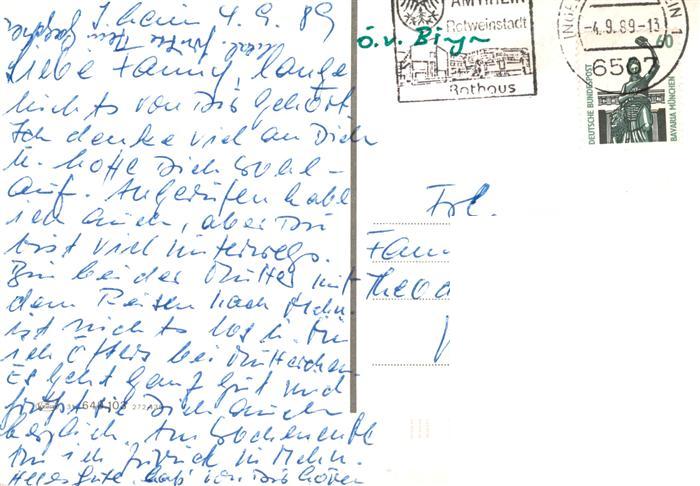 J.heim 4.9.89
Liebe Fanny, lange
nichts von Dir gehört.
Ich denke viel an Dich
u. hoffe Dich wohl-
auf. Angerufen habe
ich auch, aber Du
bist viel unterwegs.
Bin bei der Mutter mit
dem Reisen nach Mchn.
ist nichts los u. bin
ich öfters bei Mütterchen
Es geht ganz gut und
grüßt Dich auch
herzlich. Am Wochenende
bin ich zurück in Mchn.
Alles Gute, hab von Dir hören
640 103 272
AM RHEIN
Rotweinstadt
Rathaus
ö.v. Bingen
INGE
EIN 1
-4.9.89-13
6507
60
DEUTSCHE BUNDESPOST
BAVARIA MÜNCHEN
Frl.
Fann
Theod